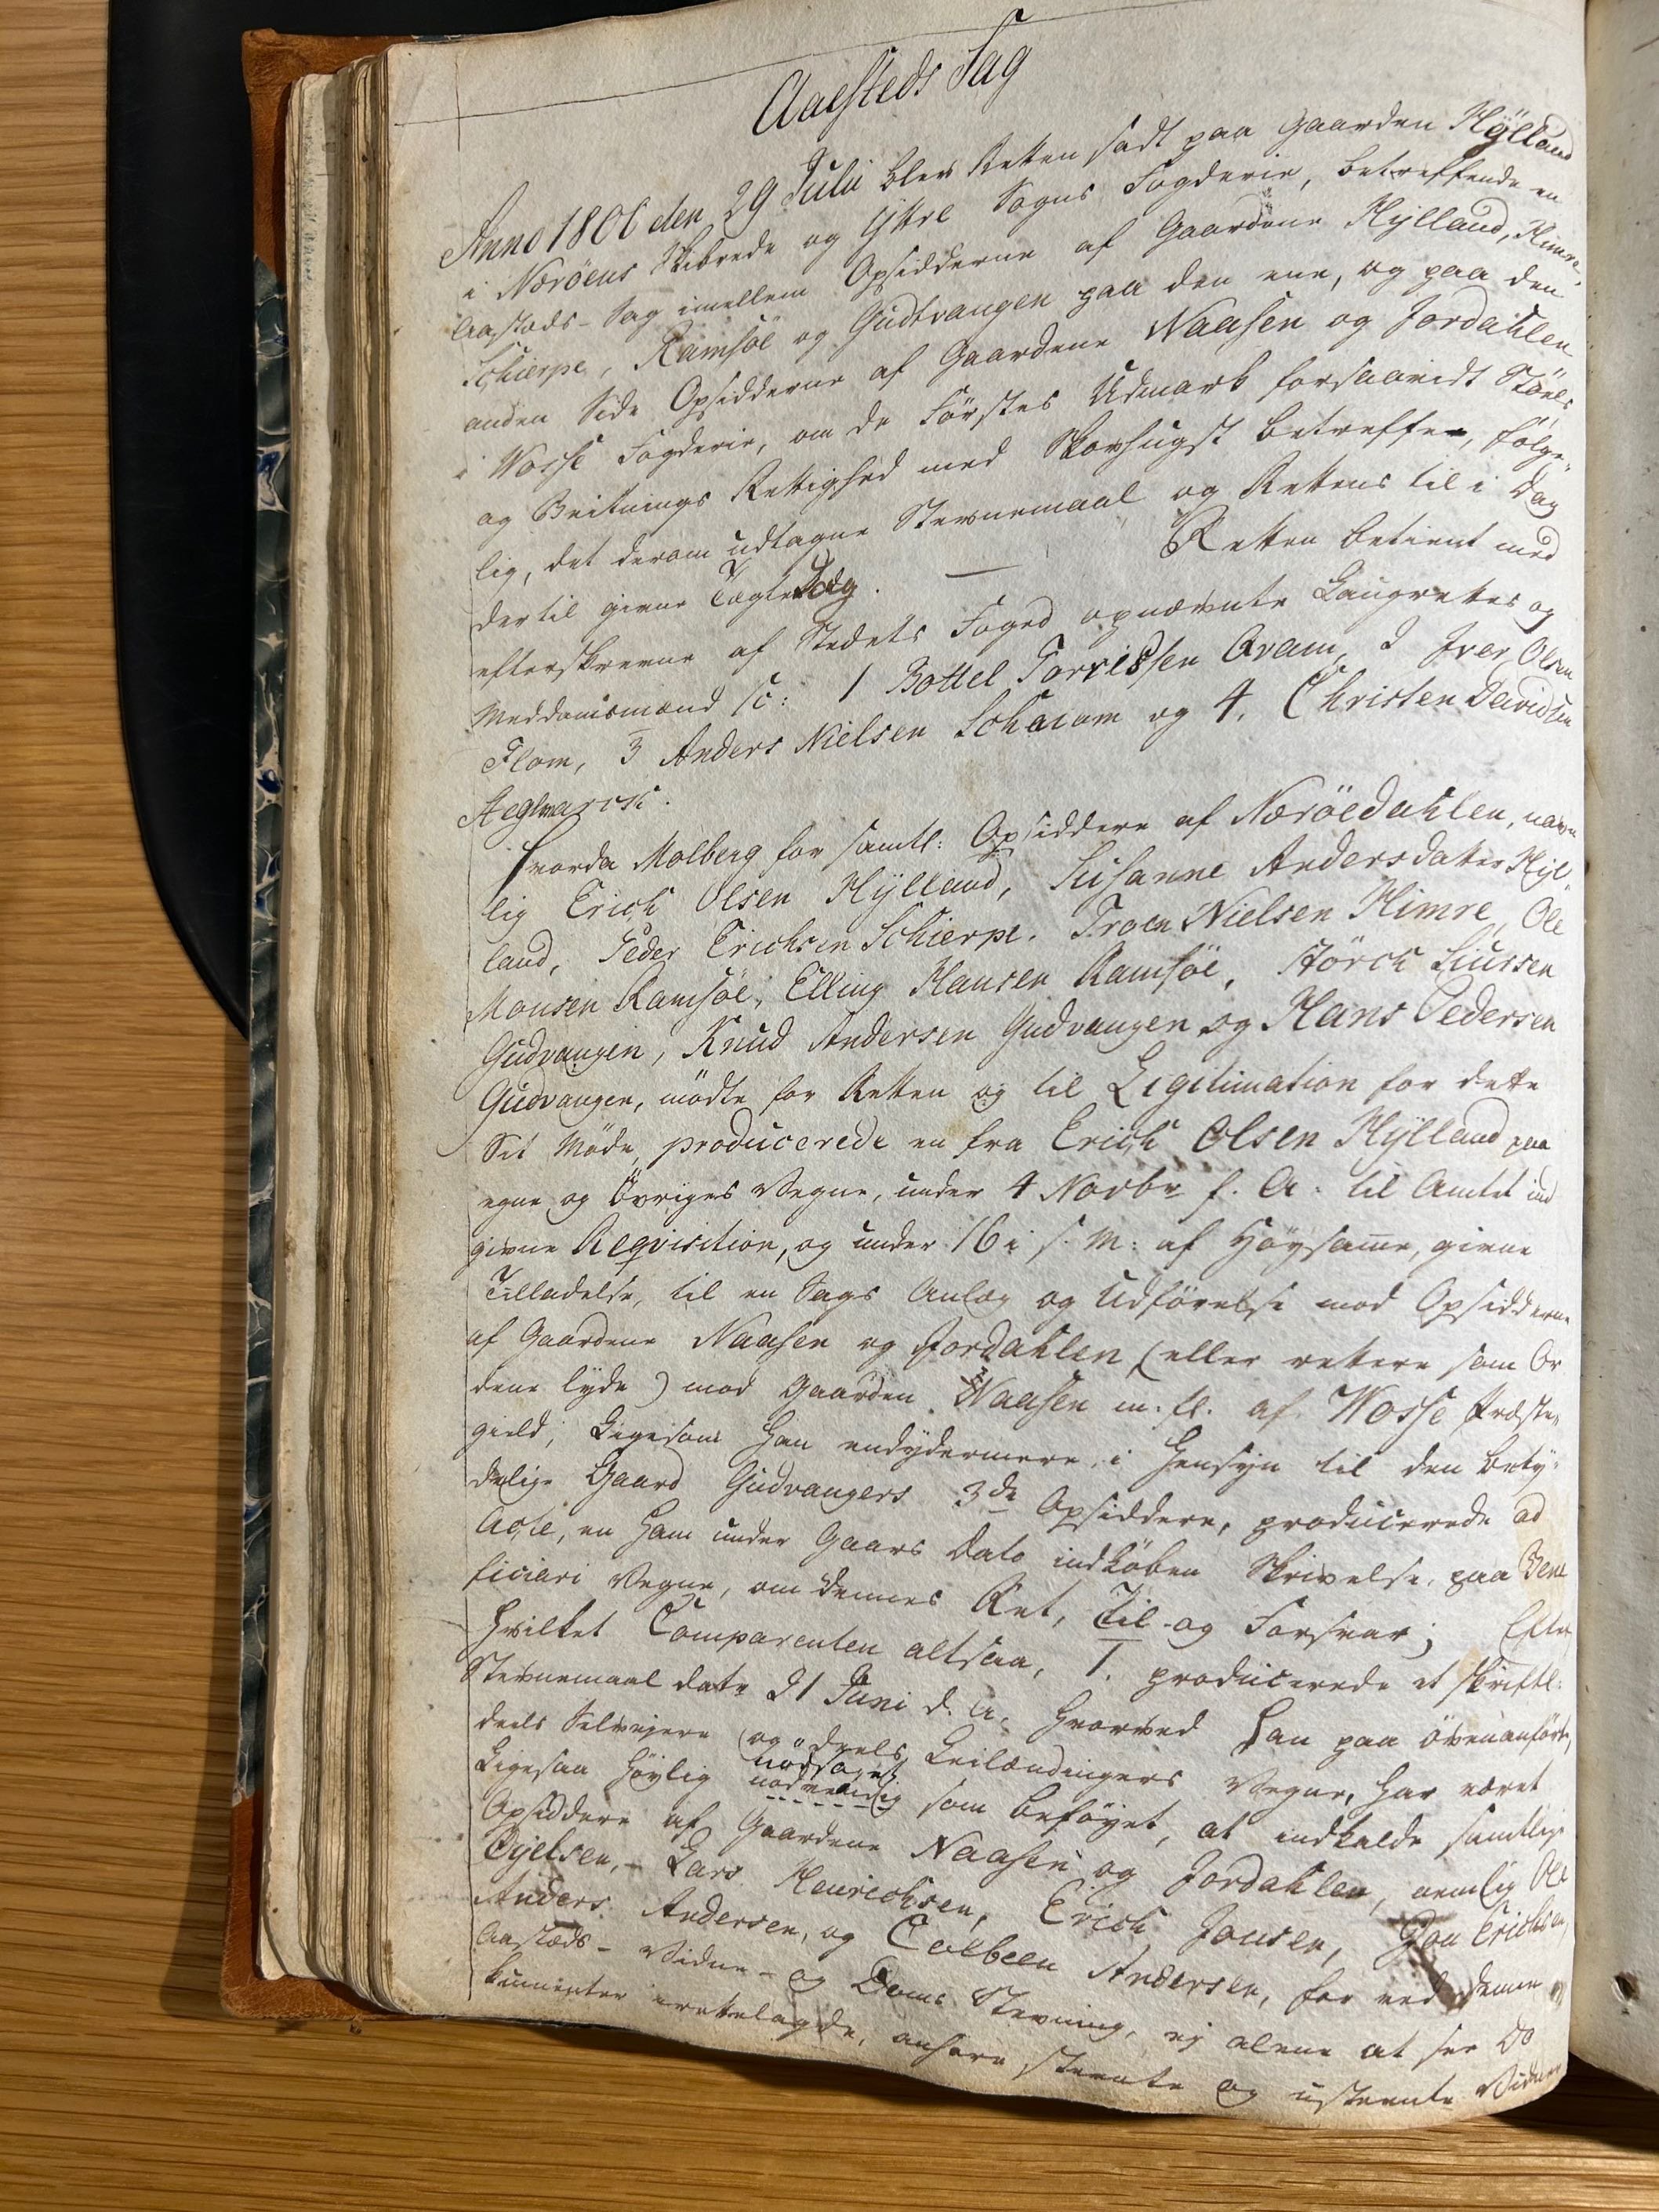 Aaesteds Sag
Anno 1806 den 29 Julii blev Retten sadt paa Gaarden Hÿlland
i Neröens Skibrede og Ÿttre Sogns Fogderie, betreffende en
Aasteds-Sag imellem Opsidderne af Gaardene Hÿlland, Himre,
Schierpe, Ramsöe og Gudtvangen paa den ene, og paa den
anden Side Opsidderne af Gaardene Naasen og Jordahlen
i Wosse Fogderie, om de Førstes Udmark forsaavidt Støels
og Beitnings Rettighed med Skovhugst betreffer, følge„
lig, det derom udtagne Stevnemaal og Rettens til i Dag
dertil givne Tægtedag. — Retten betient med
efterskrevne af Stedets Foged opnævnte Laugrettes og
Meddomsmænd sc: 1 Bottel Torvedsen Qvam, 2 Iver Olsen
Flom, 3 Anders Nielsen Schaiam og 4. Christen Davidsen
Steglmarck.
Hvorda Molberg for samtl: Opsiddere af Neröedahlen, navn
lig Erich Olsen Hÿlland, Susanne Andersdatter Hÿl„
land, Peder Erichsen Schierpe. Troen Nielsen Himre, Ole
Monsen Ramsöe, Elling Hansen Ramsöe, Störch Siursen
Gudvangen, Knud Andersen Gudvangen og Hans Pedersen
Gudvangen, mödte for Retten og til Legitimation for dette
Sit Möde, producerede en fra Erich Olsen Hÿlland paa
egne og Övriges Vegne, under 4 Novbr f. A. til Amtet ind
givne Reqvisition, og under 16 i s. M: af Höysamme, givne
Tilladelse, til en Sags Anlæg og Udförelse mod Opsidderne
af Gaardene Naasen og Jordahlen (eller rettere som Or
dene lyde) mod Gaarden Naasen m. fl. af Wosse Præste„
gield; Ligesom han endydermere, i Hensyn til den bety„
delige Gaard Gudvangers 3de Opsiddere, producerede ad
Acta, en ham under Gaars Dato indløben Skrivelse, paa Bene
ficiari Vegne, om dennes Ret, Til- og Forsvar; Efter
hvilket Comparenten altsaa, 1. producerede et skriftl:
Stevnemaal datr 21 Juni d. A. hvorved han paa ovenanførte,
deels Selvejere (og deels Leilændingers Vegne, har været
nödsaget
Ligesaa höylig nödvendig som beföyet, at indkalde samtlige
Opsiddere af Gaardene Naasen og Jordahlen, nemlig Ole
Eÿelsen, Lars Henrichsen, Erich Jonsen, Jon Erichsen,
Anders Andersen, og Colbeen Andersen, for ved denne
Aasteds- Vidne- og Doms Stevning, ej alene at see Do
kumenter irettelagde, anhøre stevnte og ustevnte Vidner